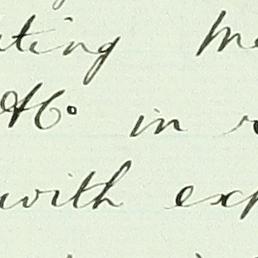 ting M
& Co in
with exp